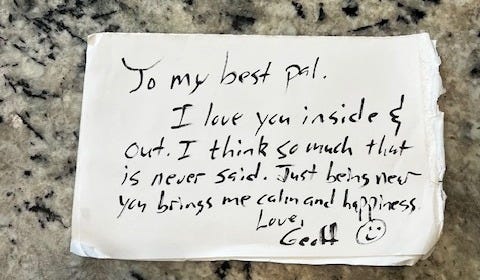 To my best pal.
I love you inside &
out. I think so much that
is never said. Just being near
you brings me calm and happiness
Love,
Geoff